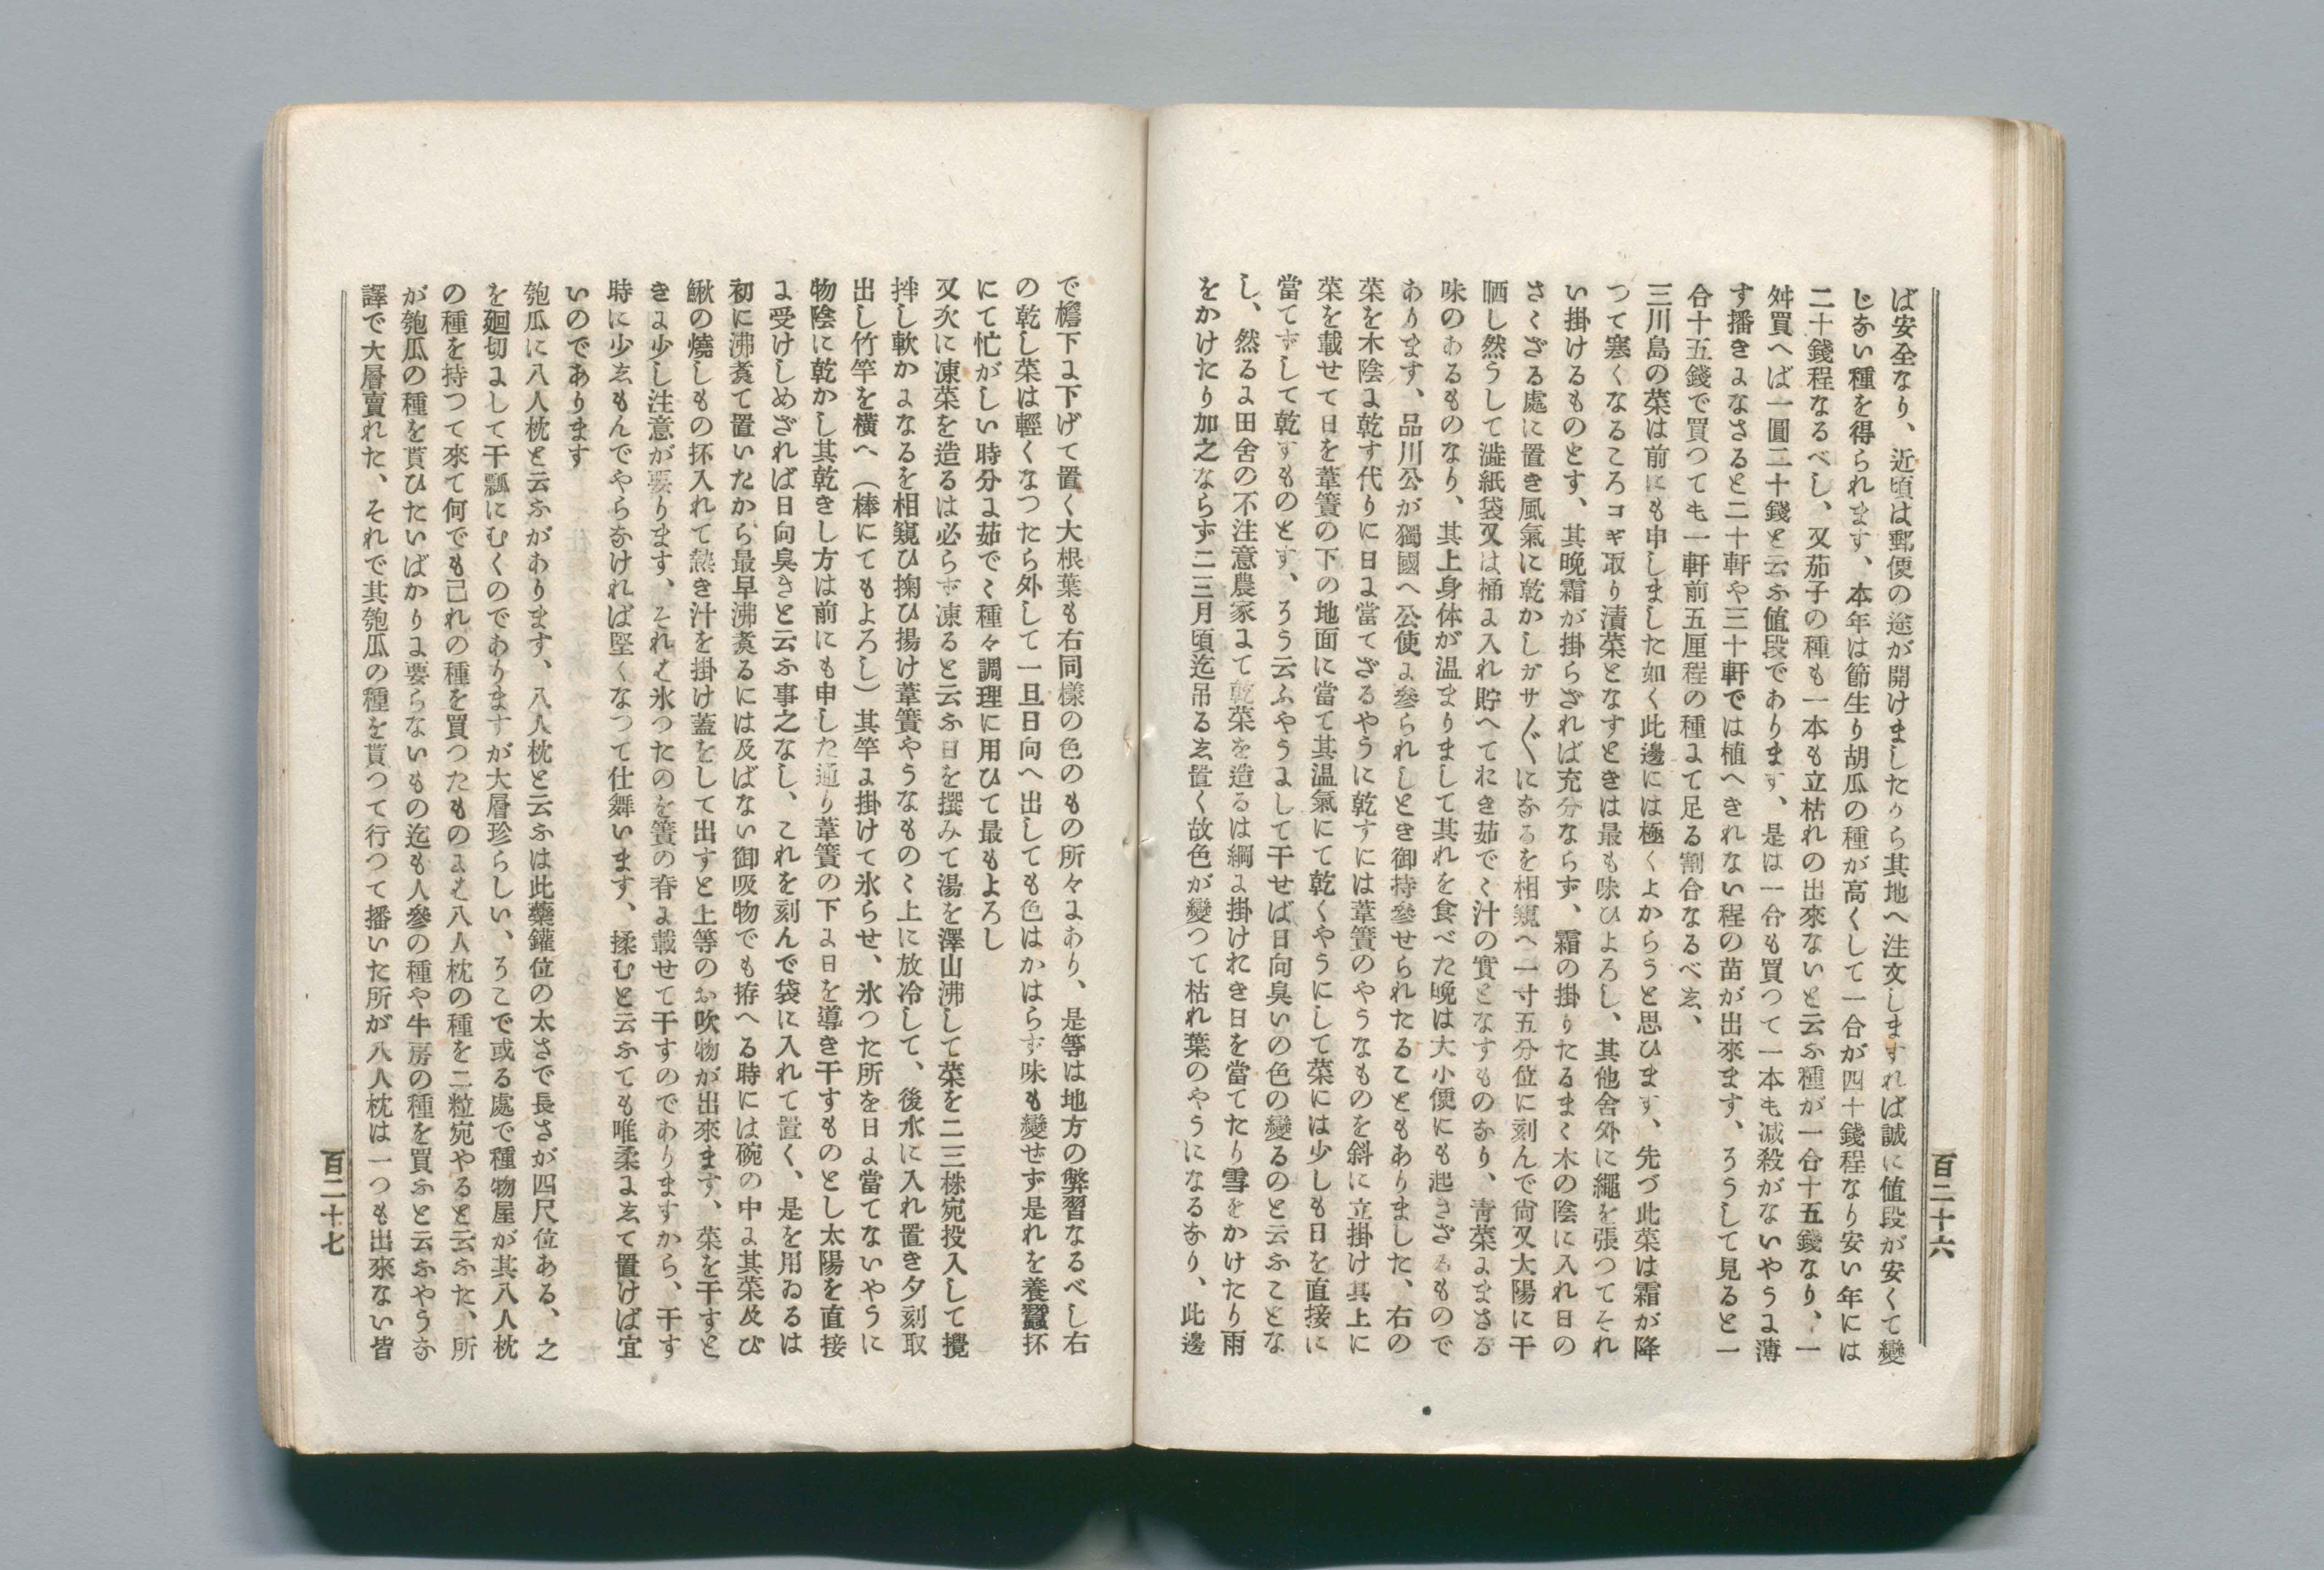 ば安全なり、近頃は郵便の途が開けましたから其地へ注文しますれば誠に値段が安くて變
じない種を得られます、本年は節生り胡瓜の種が高くして一合が四十錢程なり安い年には
二十錢程なるべし、又茄子の種も一本も立枯れの出來ないと云ふ種が一合十五錢なり、一
舛買へば一圓二十錢と云ふ値段であります、是は一合も買つて一本も減殺がないやうに薄
す播きになさると二十軒や三十軒では植へきれない程の苗が出來ます、そうして見ると一
合十五錢で買つても一軒前五厘程の種にて足る割合なるべし、
三川島の菜は前にも申しました如く此邊には極くよからうと思ひます、先づ此菜は霜が降
つて寒くなるころコギ取り漬菜となすときは最も味ひよろし、其他舍外に繩を張つてそれ
い掛けるものとす、其晩霜が掛らざれば充分ならず、霜の掛りたるまゝ木の陰に入れ日の
さくざる處に置き風氣に乾かしガサ〱になるを相窺へ一寸五分位に刻んで尙又大陽に干
晒し然うして澁紙袋又は桶に入れ貯へてにき茹でゝ汁の實となすものなり、靑菜にまさる
味のあるものなり、其上身体が温まりまして其れを食べた晩は大小便にも起きざるもので
あります、品川公が獨國へ公使に參られしとき御持參せられたることもありました、右の
菜を木陰に乾す代りに日に當てざるやうに乾すには葦簀のやうなものを斜に立掛け其上に
菜を載せて日を葦簀の下の地面に當て其温氣にて乾くやうにして菜には少しも日を直接に
當てずして乾すものとす、そう云ふやうにして干せば日向臭いの色の變るのと云ふことな
し、然るに田舍の不注意農家にて乾菜を造るは綱に掛けれき日を當てたり雪をかけたり雨
をかけたり加之ならず二三月頃迄吊るし置く故色が變つて枯れ葉のやうになるなり、此邊
百二十六
で檐下に下げて置く大根葉も右同樣の色のもの所々にあり、是等は地方の弊習なるべし右
の乾し菜は輕くなつたら外して一旦日向へ出しても色はかはらず味も變せず是れを養蠶抔
にて忙がしい時分に茹でゝ種々調理に用ひて最もよろし
又次に凍菜を造るは必らず凍ると云ふ日を撰みて湯を澤山沸して菜を二三株宛投入して攪
拌し軟かになるを相窺ひ掬ひ揚け葦簀やうなものゝ上に放冷して、後水に入れ置き夕刻取
出し竹竿を横へ（棒にてもよろし）其竿に掛けて氷らせ、氷つた所を日に當てないやうに
物陰に乾かし其乾きし方は前にも申した通り葦簀の下に日を導き干すものとし太陽を直接
に受けしめざれば日向臭きと云ふ事之なし、これを刻んで袋に入れて置く、是を用ゐるは
初に沸煑て置いたから最早沸煑るには及ばない御吸物でも拵へる時には碗の中に其菜及び
鰍の燒しもの抔入れて熱き汁を掛け蓋をして出すと上等のお吹物が出來ます、菜を干すと
きに少し注意が要ります、それは氷つたのを簀の脊に載せて干すのでありますから、干す
時に少しもんでやらなければ堅くなつて仕舞います、揉むと云ふても唯柔にして置けば宜
いのであります
匏瓜に八人枕と云ふがあります、八人枕と云ふは此藥鑵位の太さで長さが四尺位ある、之
を廻切にして干瓢にむくのでありますが大層珍らしい、そこで或る處で種物屋が其八人枕
の種を持つて來て何でも己れの種を買つたものには八人枕の種を二粒宛やると云ふた、所
が匏瓜の種を貰ひたいばかりに要らないもの迄も人參の種や牛房の種を買ふと云ふやうな
譯で大層賣れた、それで其匏瓜の種を貰つて行つて播いた所が八人枕は一つも出來ない皆
百二十七